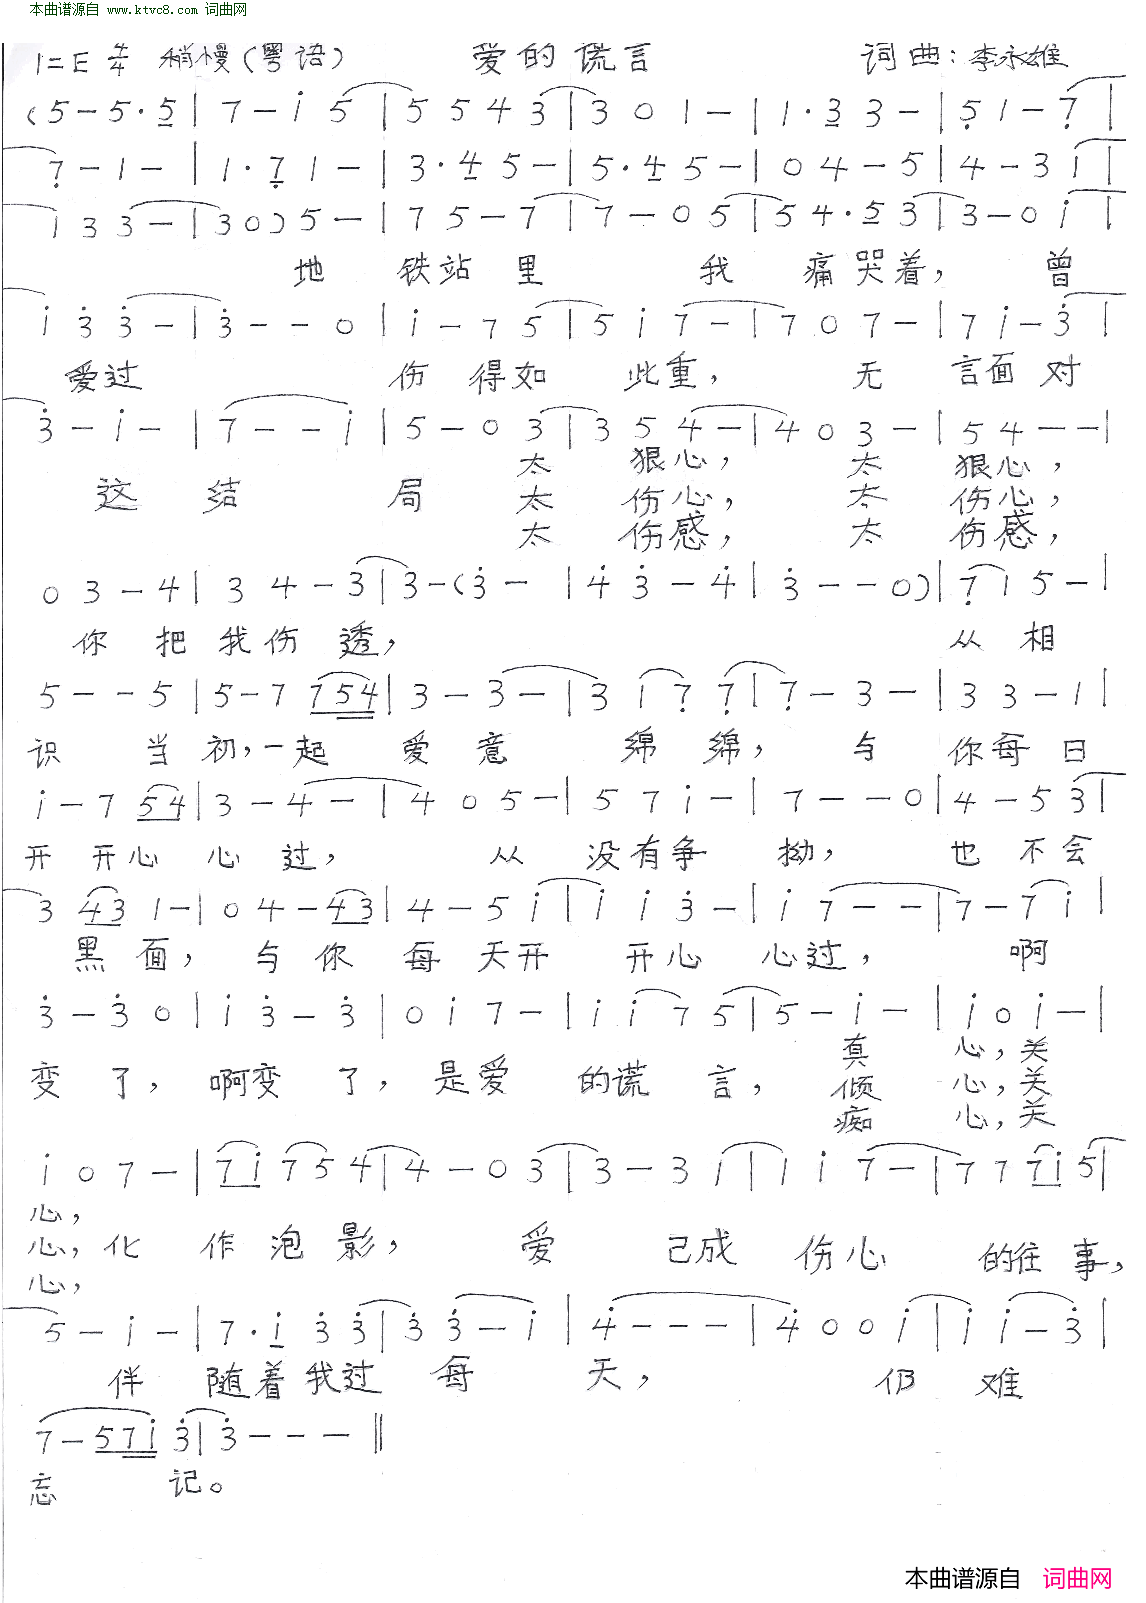 本曲谱源自 www.ktvc8.com 词曲网
1=E 4/4 稍慢(粤语) 爱的谎言 词曲:李永雄
(5-5·5|7-i 5|5 5 4 3|3 0 1-|1·3 3-|5 1-7|
7-1-|1·7 1-|3·4 5-|5·4 5-|0 4-5|4-3 i|
i 3 3-|3 0) 5-|7 5-7|7-0 5|5 4·5 3|3-0 i|
地 铁站里 我 痛哭着, 曾
i 3 3-|3--0|i-7 5|5 i 7-|7 0 7-|7 i-3|
爱过 伤 得如 此重, 无 言面对
3-i-|7--i|5-0 3|3 5 4-|4 0 3-|5 4--|
太 狠心, 太 狠心,
这 结 局 太 伤心, 太 伤心,
太 伤感, 太 伤感,
0 3-4|3 4-3|3-(3-|4 3-4|3--0)|7 1 5-|
你 把我伤透, 从相
5--5|5-7 754|3-3-|3 1 7 7|7-3-|3 3-1|
识 当初,一起 爱意 绵绵, 与 你每日
i-7 54|3-4-|4 0 5-|5 7 i-|7--0|4-5 3|
开 开心 心 过, 从 没有争 拗, 也 不会
3 43 1-|0 4-43|4-5 i|i i 3-|i 7--|7-7 i|
黑面, 与你 每天开 开心 心过, 啊
3-3 0|i 3-3|0 i 7-|i i 7 5|5-i-|i 0 i-|
真 心,关
变 了, 啊变 了, 是爱 的谎 言, 倾 心,关
痴 心,关
i 0 7-|7i 7 5 4|4-0 3|3-3 i|1 i 7-|7 7 7i 5|
心,
心,化 作泡影, 爱 已成 伤心 的往事,
心,
5-i-|7·i 3 3|3 3-i|4---|4 0 0 i|i i-3|
伴 随着我过 每 天, 仍难
7-57i 3|3---‖
忘 记。
本曲谱源自 词曲网